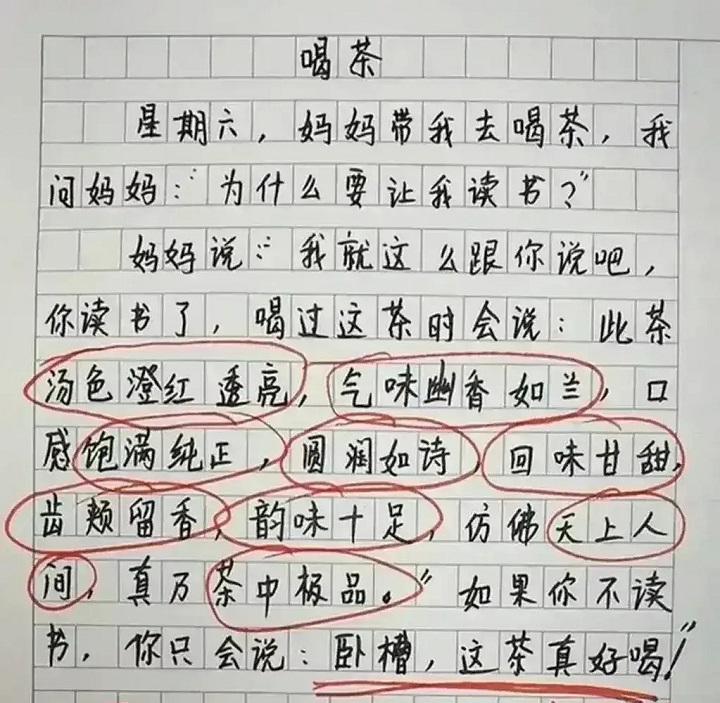 喝茶
星期六，妈妈带我去喝茶，我
问妈妈：“为什么要让我读书？”
妈妈说：“我就这么跟你说吧，
你读书了，喝过这茶时会说：此茶
汤色澄红透亮，气味幽香如兰，口
感饱满纯正，圆润如诗，回味甘甜，
齿颊留香，韵味十足，仿佛天上人
间，真乃茶中极品。”如果你不读
书，你只会说：卧槽，这茶真好喝！”